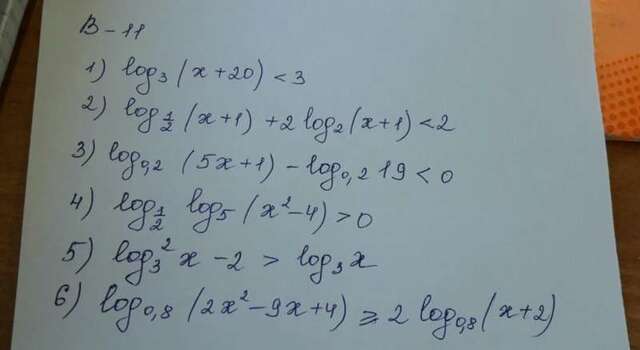 В-11
1) log₃(x+20) < 3
2) log_{1/2}(x+1) + 2 log₂(x+1) < 2
3) log₀,₂(5x+1) - log₀,₂19 < 0
4) log_{1/2} log₅(x²-4) > 0
5) log₃²x - 2 > log₃x
6) log₀,₈(2x²-9x+4) ≥ 2 log₀,₈(x+2)